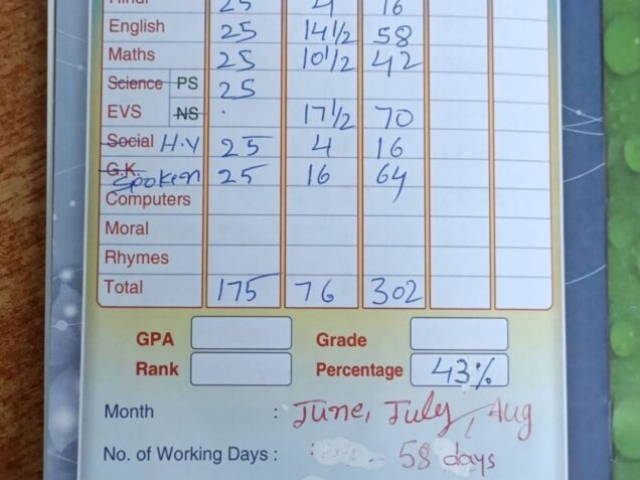 Hindi 25 4 16
English 25 14 1/2 58
Maths 25 10 1/2 42
Science PS 25
EVS NS 17 1/2 70
Social H.Y 25 4 16
G.K. Spoken 25 16 64
Computers
Moral
Rhymes
Total 175 76 302
GPA Grade
Rank Percentage 43%
Month : June, July, Aug
No. of Working Days : 58 days